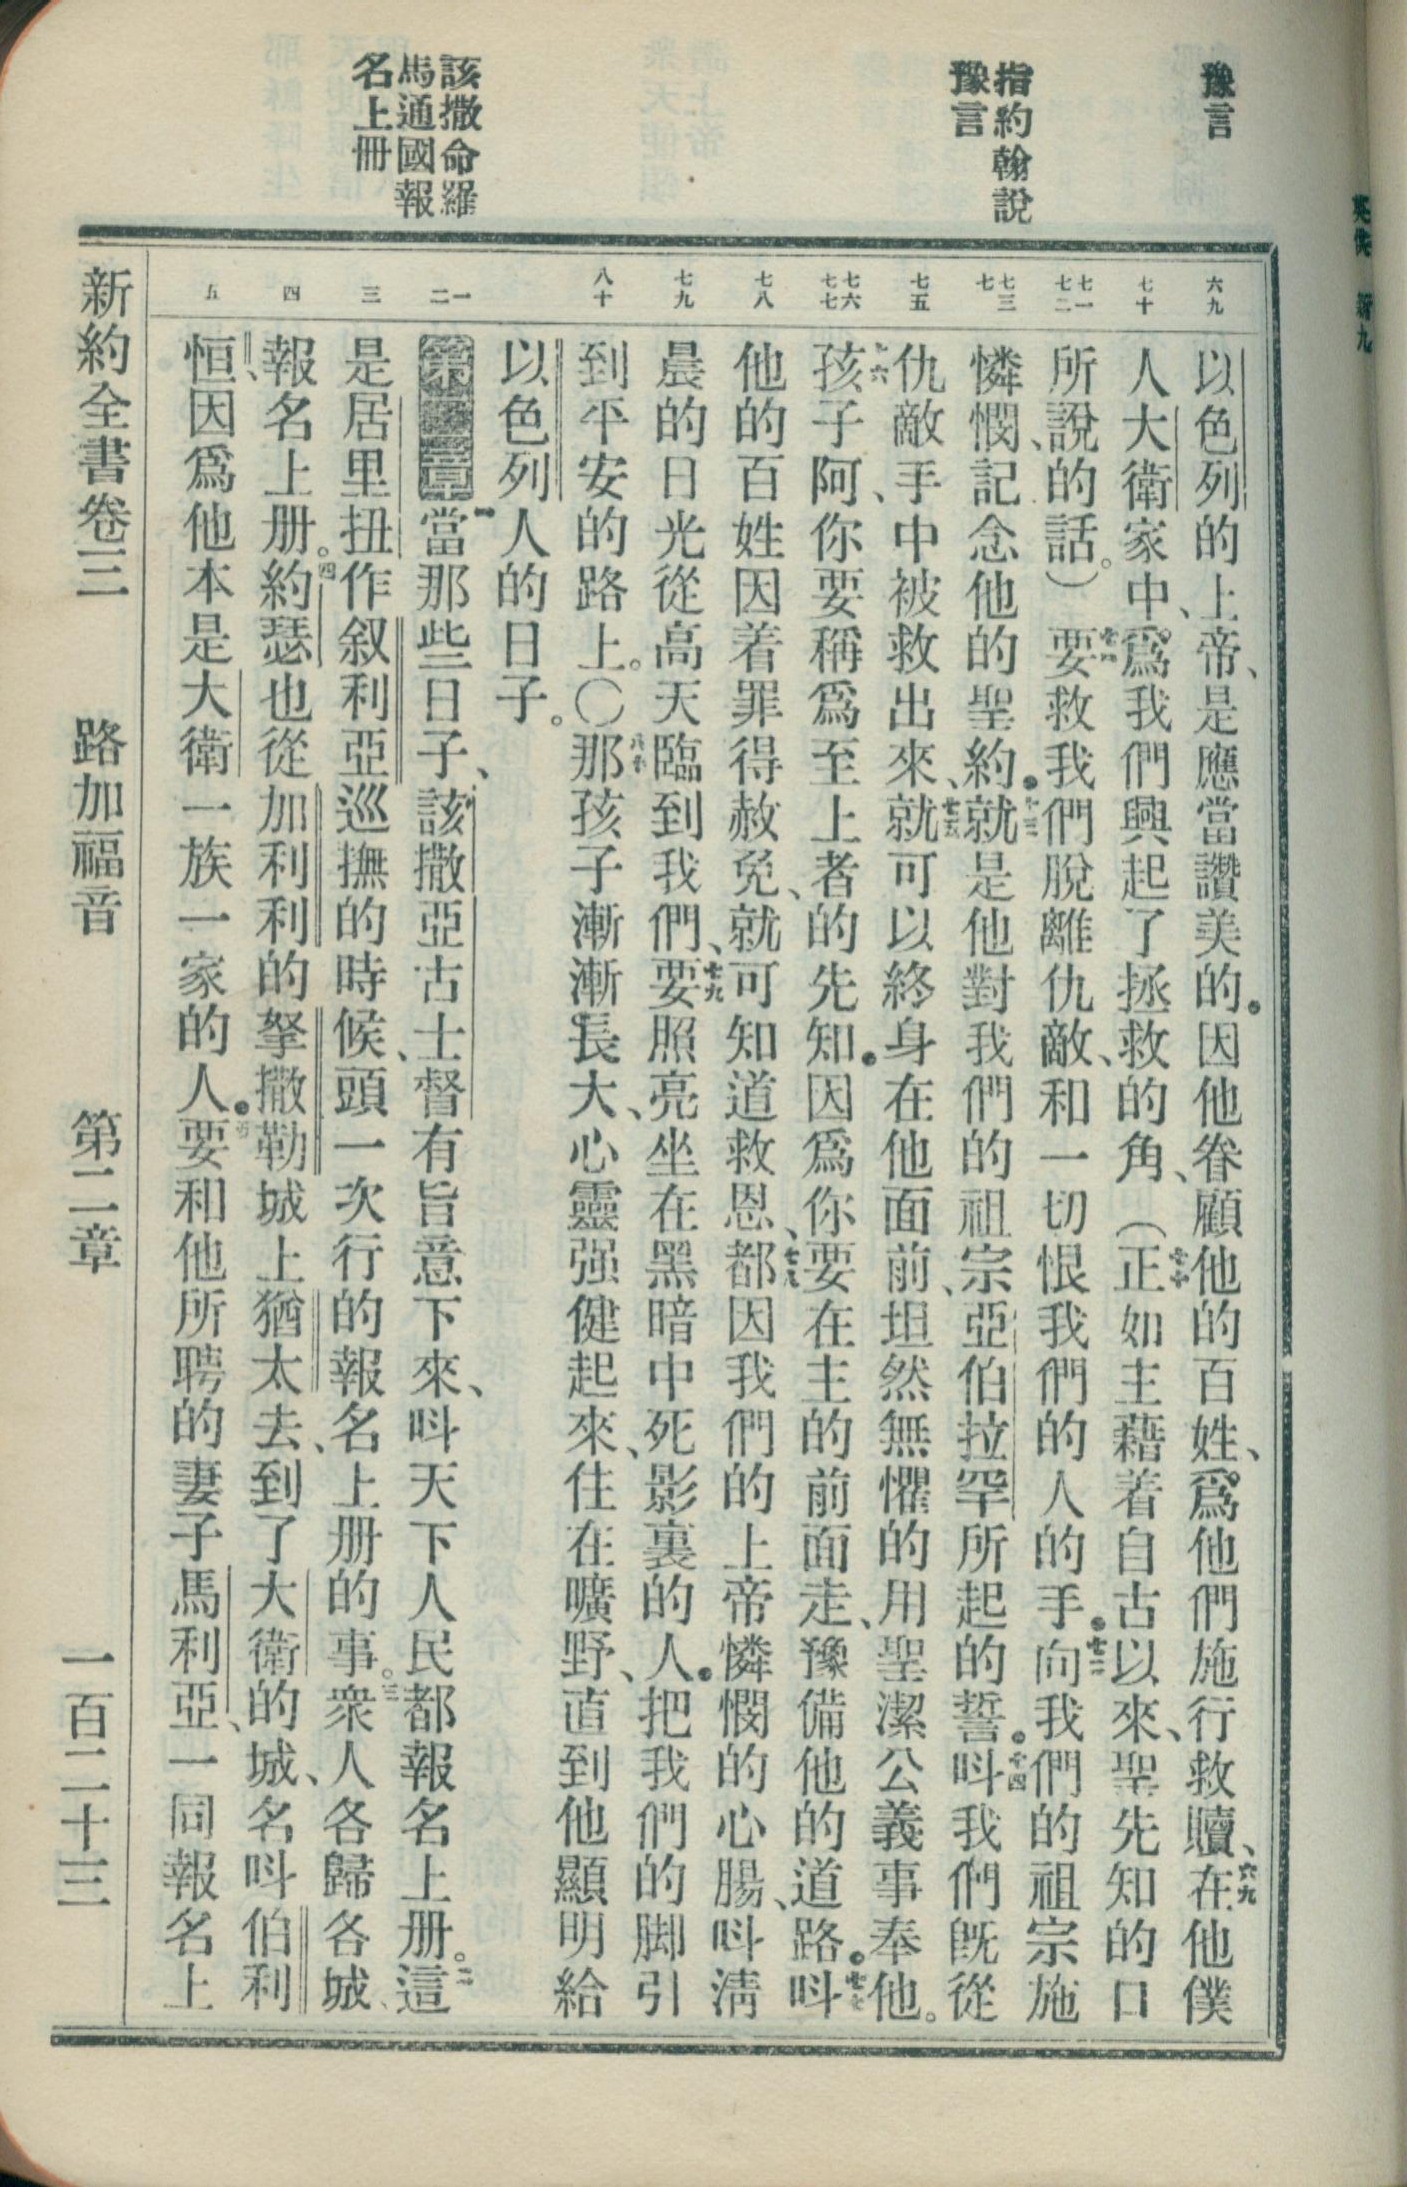 豫言
指約翰說
豫言
該撒命羅
馬通國報
名上冊
六九
七十
七一
七二
七三
七
七五
七六
七七
七八
七九
八十
一
二
三
四
五
以色列的上帝、是應當讚美的．因他眷顧他的百姓、爲他們施行救贖、六九在他僕
人大衛家中、爲我們興起了拯救的角、（七十正如主藉着自古以來、聖先知的口
所說的話。）七一要救我們脫離仇敵、和一切恨我們的人的手．七二向我們的祖宗施
憐憫、記念他的聖約．七三就是他對我們的祖宗亞伯拉罕所起的誓。七四呌我們旣從
仇敵手中被救出來、七五就可以終身在他面前、坦然無懼的用聖潔公義事奉他。
七六孩子阿、你要稱爲至上者的先知．因爲你要在主的前面走、豫備他的道路．七七呌
他的百姓因着罪得赦免、就可知道救恩、七八都因我們的上帝憐憫的心腸、呌淸
晨的日光從高天臨到我們、七九要照亮坐在黑暗中死影裏的人．把我們的脚引
到平安的路上。〇八十那孩子漸漸長大、心靈强健起來、住在曠野、直到他顯明給
以色列人的日子。
第二章 一當那些日子、該撒亞古士督有旨意下來、呌天下人民都報名上册。二這
是居里扭作叙利亞巡撫的時候、頭一次行的報名上册的事。三衆人各歸各城、
報名上册。四約瑟也從加利利的拏撒勒城上猶太去、到了大衛的城、名呌伯利
恒、因爲他本是大衛一族一家的人．五要和他所聘的妻子馬利亞、一同報名上
新約全書卷三　路加福音　第二章　一百二十三